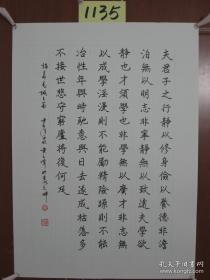 1135
夫君子之行靜以修身儉以養德非澹
泊無以明志非寧靜無以致遠夫學欲
靜也才須學也非學無以廣才非志無
以成學淫漫則不能勵精險躁則不能
冶性年與時馳意與日去遂成枯落多
不接世悲守窮廬將復何及
諸葛亮誡子書